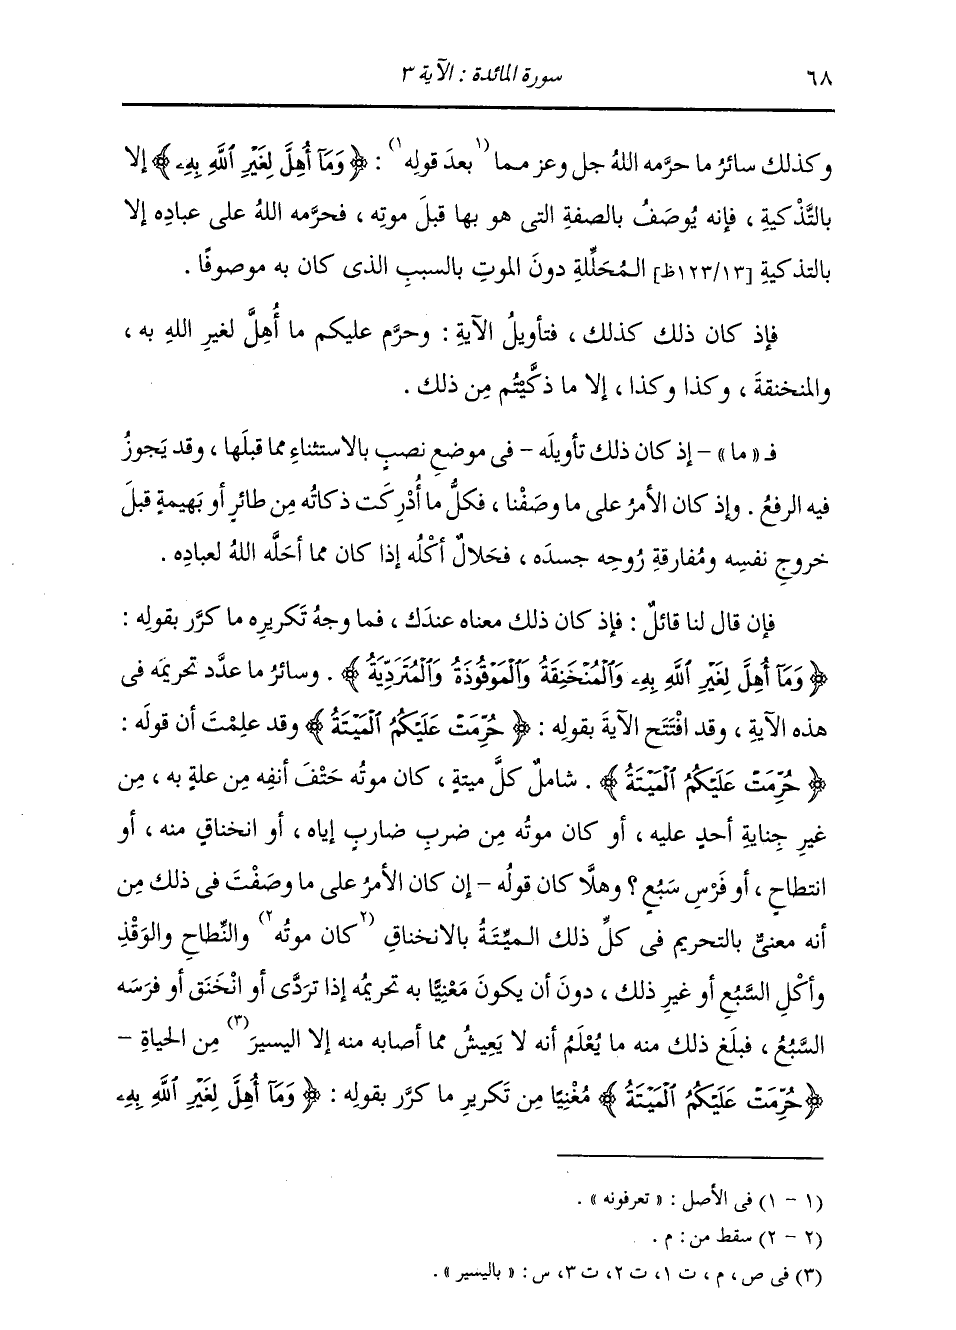 ٦٨ سورة المائدة : الآية ٣
وكذلك سائرُ ما حرَّمه اللهُ جل وعز مـما ⁽١بعدَ قولِه١⁾ : ﴿ وَمَآ أُهِلَّ لِغَيْرِ ٱللَّهِ بِهِۦ ﴾ إلا
بالتَّذْكيةِ ، فإنه يُوصَفُ بالصفةِ التى هو بها قبلَ موتِه ، فحرَّمه اللهُ على عبادِه إلا
بالتذكيةِ [١٢٣/١٣ظ] الـمُحَلِّلةِ دونَ الموتِ بالسببِ الذى كان به موصوفًا .
فإذ كان ذلك كذلك ، فتأويلُ الآيةِ : وحرَّم عليكم ما أُهلَّ لغيرِ اللهِ به ،
والمنخنقةَ ، وكذا وكذا ، إلا ما ذكَّيْتُم مِن ذلك .
فـ « ما » – إذ كان ذلك تأويلَه – فى موضعِ نصبٍ بالاستثناءِ مما قبلَها ، وقد يَجوزُ
فيه الرفعُ . وإذ كان الأمرُ على ما وصَفْنا ، فكلُّ ما أُدْرِكَت ذكاتُه مِن طائرٍ أو بَهيمةٍ قبلَ
خروجِ نفسِه ومُفارقةِ رُوحِه جسدَه ، فحَلالٌ أكْلُه إذا كان مما أحَلَّه اللهُ لعبادِه .
فإن قال لنا قائلٌ : فإذ كان ذلك معناه عندَك ، فما وجهُ تَكريرِه ما كرَّر بقولِه :
﴿ وَمَآ أُهِلَّ لِغَيْرِ ٱللَّهِ بِهِۦ وَٱلْمُنْخَنِقَةُ وَٱلْمَوْقُوذَةُ وَٱلْمُتَرَدِّيَةُ ﴾ . وسائرُ ما عدَّد تحريمَه فى
هذه الآيةِ ، وقد افْتَتَح الآيةَ بقولِه : ﴿ حُرِّمَتْ عَلَيْكُمُ ٱلْمَيْتَةُ ﴾ وقد علِمْتَ أن قولَه :
﴿ حُرِّمَتْ عَلَيْكُمُ ٱلْمَيْتَةُ ﴾ . شاملٌ كلَّ ميتةٍ ، كان موتُه حَتْفَ أنفِه مِن علةٍ به ، مِن
غيرِ جِنايةِ أحدٍ عليه ، أو كان موتُه مِن ضربِ ضاربٍ إياه ، أو انخناقٍ منه ، أو
انتطاحٍ ، أو فَرْسِ سَبُعٍ ؟ وهلَّا كان قولُه – إن كان الأمرُ على ما وصَفْتَ فى ذلك مِن
أنه معنىٌّ بالتحريمِ فى كلِّ ذلك الـميِّتَةُ بالانخناقِ ⁽٢كان موتُه٢⁾ والنِّطاحِ والوَقْذِ
وأكْلِ السَّبُعِ أو غيرِ ذلك ، دونَ أن يكونَ مَعْنِيًّا به تحريمُه إذا تردَّى أو انْخَنَق أو فرَسَه
السَّبُعُ ، فبلَغ ذلك منه ما يُعْلَمُ أنه لا يَعِيشُ مما أصابه منه إلا اليسيرَ⁽٣⁾ مِن الحياةِ –
﴿ حُرِّمَتْ عَلَيْكُمُ ٱلْمَيْتَةُ ﴾ مُغْنِيًا مِن تَكريرِ ما كرَّر بقولِه : ﴿ وَمَآ أُهِلَّ لِغَيْرِ ٱللَّهِ بِهِۦ
(١ – ١) فى الأصل : « تعرفونه » .
(٢ – ٢) سقط من : م .
(٣) فى ص ، م ، ت ١، ت ٢، ت ٣، س : « باليسير » .